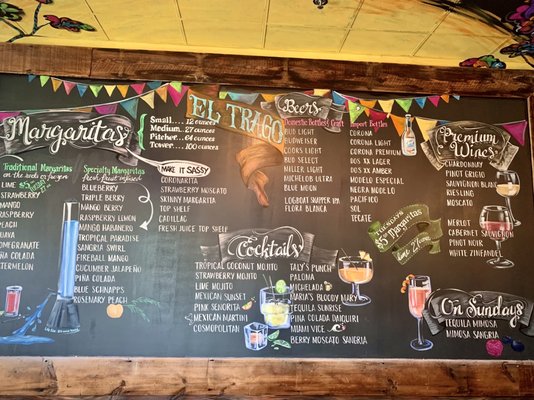 Margaritas
Traditional Margaritas
on the rocks or frozen
LIME
STRAWBERRY
MANGO
RASPBERRY
PEACH
PIÑA COLADA
Specialty Margaritas
fresh fruit infused
BLUEBERRY
TRIPLE BERRY
RASPBERRY LIMON
MANGO HABANERO
TROPICAL PARADISE
SANGRIA SWIRL
FIREBALL MANGO
CUCUMBER JALAPEÑO
PINA COLADA
BLUE SCHNAPPS
ROSEMARY PEACH
Small... 12 ounces
Medium... 27 ounces
Pitcher... 64 ounces
Tower... 100 ounces
MAKE IT SASSY
CORONARITA
STRAWBERRY MOSCATO
SKINNY MARGARITA
TOP SHELF
CADILLAC
FRESH JUICE TOP SHELF
EL TRAGO
Beers
Domestic Bottles/Craft
BUD LIGHT
BUDWEISER
COORS LIGHT
BUD SELECT
MILLER LIGHT
MICHELOB ULTRA
BLUE MOON
LOGBOAT SNAPPER IPA
FLORA BLANCA
Import Bottles
CORONA
CORONA LIGHT
CORONA PREMIUM
DOS XX LAGER
DOS XX AMBER
MODELO ESPECIAL
NEGRA MODELO
PACIFICO
SOL
TECATE
TUESDAYS
$5 Margaritas
Lime 12ounce
Premium Wines
CHARDONNAY
PINOT GRIGIO
SAUVIGNON BLANC
RIESLING
MOSCATO
MERLOT
CABERNET SAUVIGNON
PINOT NOIR
WHITE ZINFANDEL
Cocktails
TROPICAL COCONUT MOJITO
STRAWBERRY MOJITO
LIME MOJITO
MEXICAN SUNSET
PINK SENORITA
MEXICAN MARTINI
COSMOPOLITAN
TALY'S PUNCH
PALOMA
MICHELADA
MARIA'S BLOODY MARY
TEQUILA SUNRISE
PINA COLADA DAIQUIRI
MIAMI VICE
BERRY MOSCATO SANGRIA
On Sundays
TEQUILA MIMOSA
MIMOSA SANGRIA